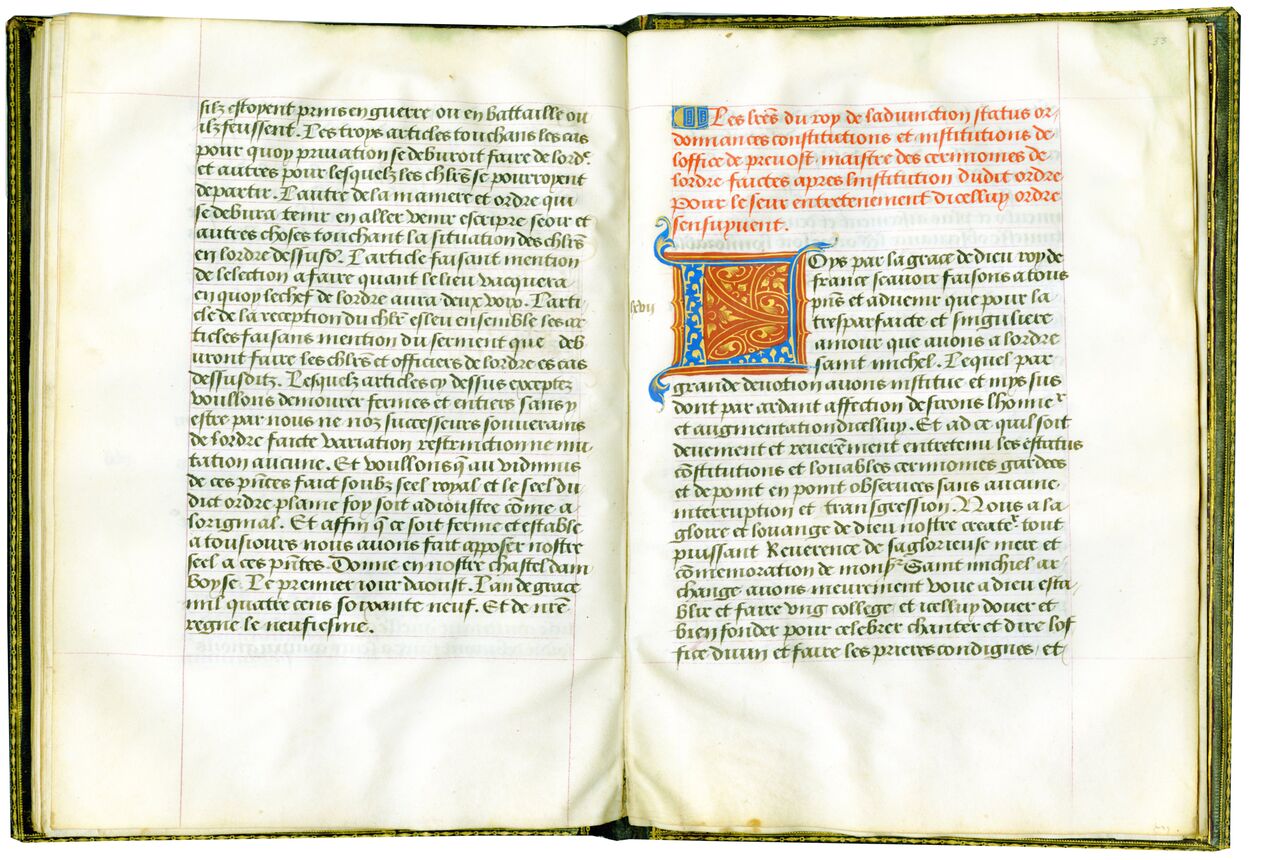 silz estoyent prins en guerre ou en battaille ou
ilz feussent. Les troys articles touchans les cas
pour quoy priuation se deburoit faire de lordͤ.
et autres pour lesquelz les chlr̄s se pourroyent
departir. Lautre de la maniere et ordre qui
se debura tenir en aller venir escripre seoir et
autres choses touchant la situation des chlr̄s
en lordre dessusdͭ. Larticle faisant mention
de lelection a faire quant le lieu vacquera
en quoy le chef de lordre aura deux voix. Larti
cle de la reception du chlr̄ esleu ensemble les ar
ticles faisans mention du serment que deb
uront faire les chlr̄s et officiers de lordre es cas
dessusditz. Lesquelz articles cy dessus exceptez
voullons demourer fermes et entiers sans y
estre par nous ne noz successeurs souuerains
de lordre faicte variation restrinction ne mu
tation aucune. Et voullons q̄ au vidimus
de ces pn̄tes faict soubz seel royal et le seel du
dict ordre plaine foy soit adioustee com̄e a
loriginal. Et affin q̄ ce soit ferme et estable
a tousiours nous auons fait apposer nostre
seel a ces pn̄tes. Donne en nostre chastel dam
boyse. Le premier iour daoust. Lan de grace
mil quatre cens soixante neuf. Et de nr̄e
regne le neufiesme.
33
Les lr̄es du roy de ladiunction status or
donnances constitutions et institutions de
loffice de preuost maistre des cerimonies de
lordre faictes apres linstitution dudit ordre
Pour le seur entretenement dicelluy ordre
sensuyuent.
Loys par la grace de dieu roy de
france scauoir faisons a tous
pn̄s et aduenir que pour la
lxvii
tresparfaicte et singuliere
amour que auons a lordre
saint michel. Lequel par
grande deuotion auons institue et mys sus
dont par ardant affection desirons lhonneͬ
et augmentation dicelluy. Et ad ce quil soit
deuement et reueren̄ment entretenu les estatus
cōstitutions et louables cerimonies gardees
et de point en point obseruees sans aucune
interruption et transgression. Nous a la
gloire et louange de dieu nostre createͬ tout
puissant Reuerence de sa glorieuse mere et
cōmemoration de monsͬ Saint michiel ar
change auons meurement voue a dieu esta
blir et faire vng college et icelluy douer et
bien fonder pour celebrer chanter et dire lof
fice diuin et faire les prieres condignes et